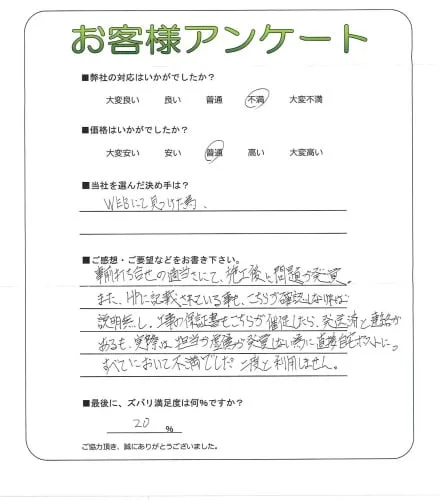 お客様アンケート
■弊社の対応はいかがでしたか?
大変良い 良い 普通 不満 大変不満
■価格はいかがでしたか?
大変安い 安い 普通 高い 大変高い
■当社を選んだ決め手は?
WEBにて見つけた為。
■ご感想・ご要望などをお書き下さい。
事前打ち合せの適当さにて、施工後に問題が発覚。
また、HPに記載されている事も、こちらが確認しなければ
説明無し。工事の保証書もこちらが催促したら、発送済と連絡が
あるも、実際は担当が発覚しない為に直接自宅ポストに。
すべてにおいて不満でした。二度と利用しません。
■最後に、ズバリ満足度は何%ですか?
20 %
ご協力頂き、誠にありがとうございました。